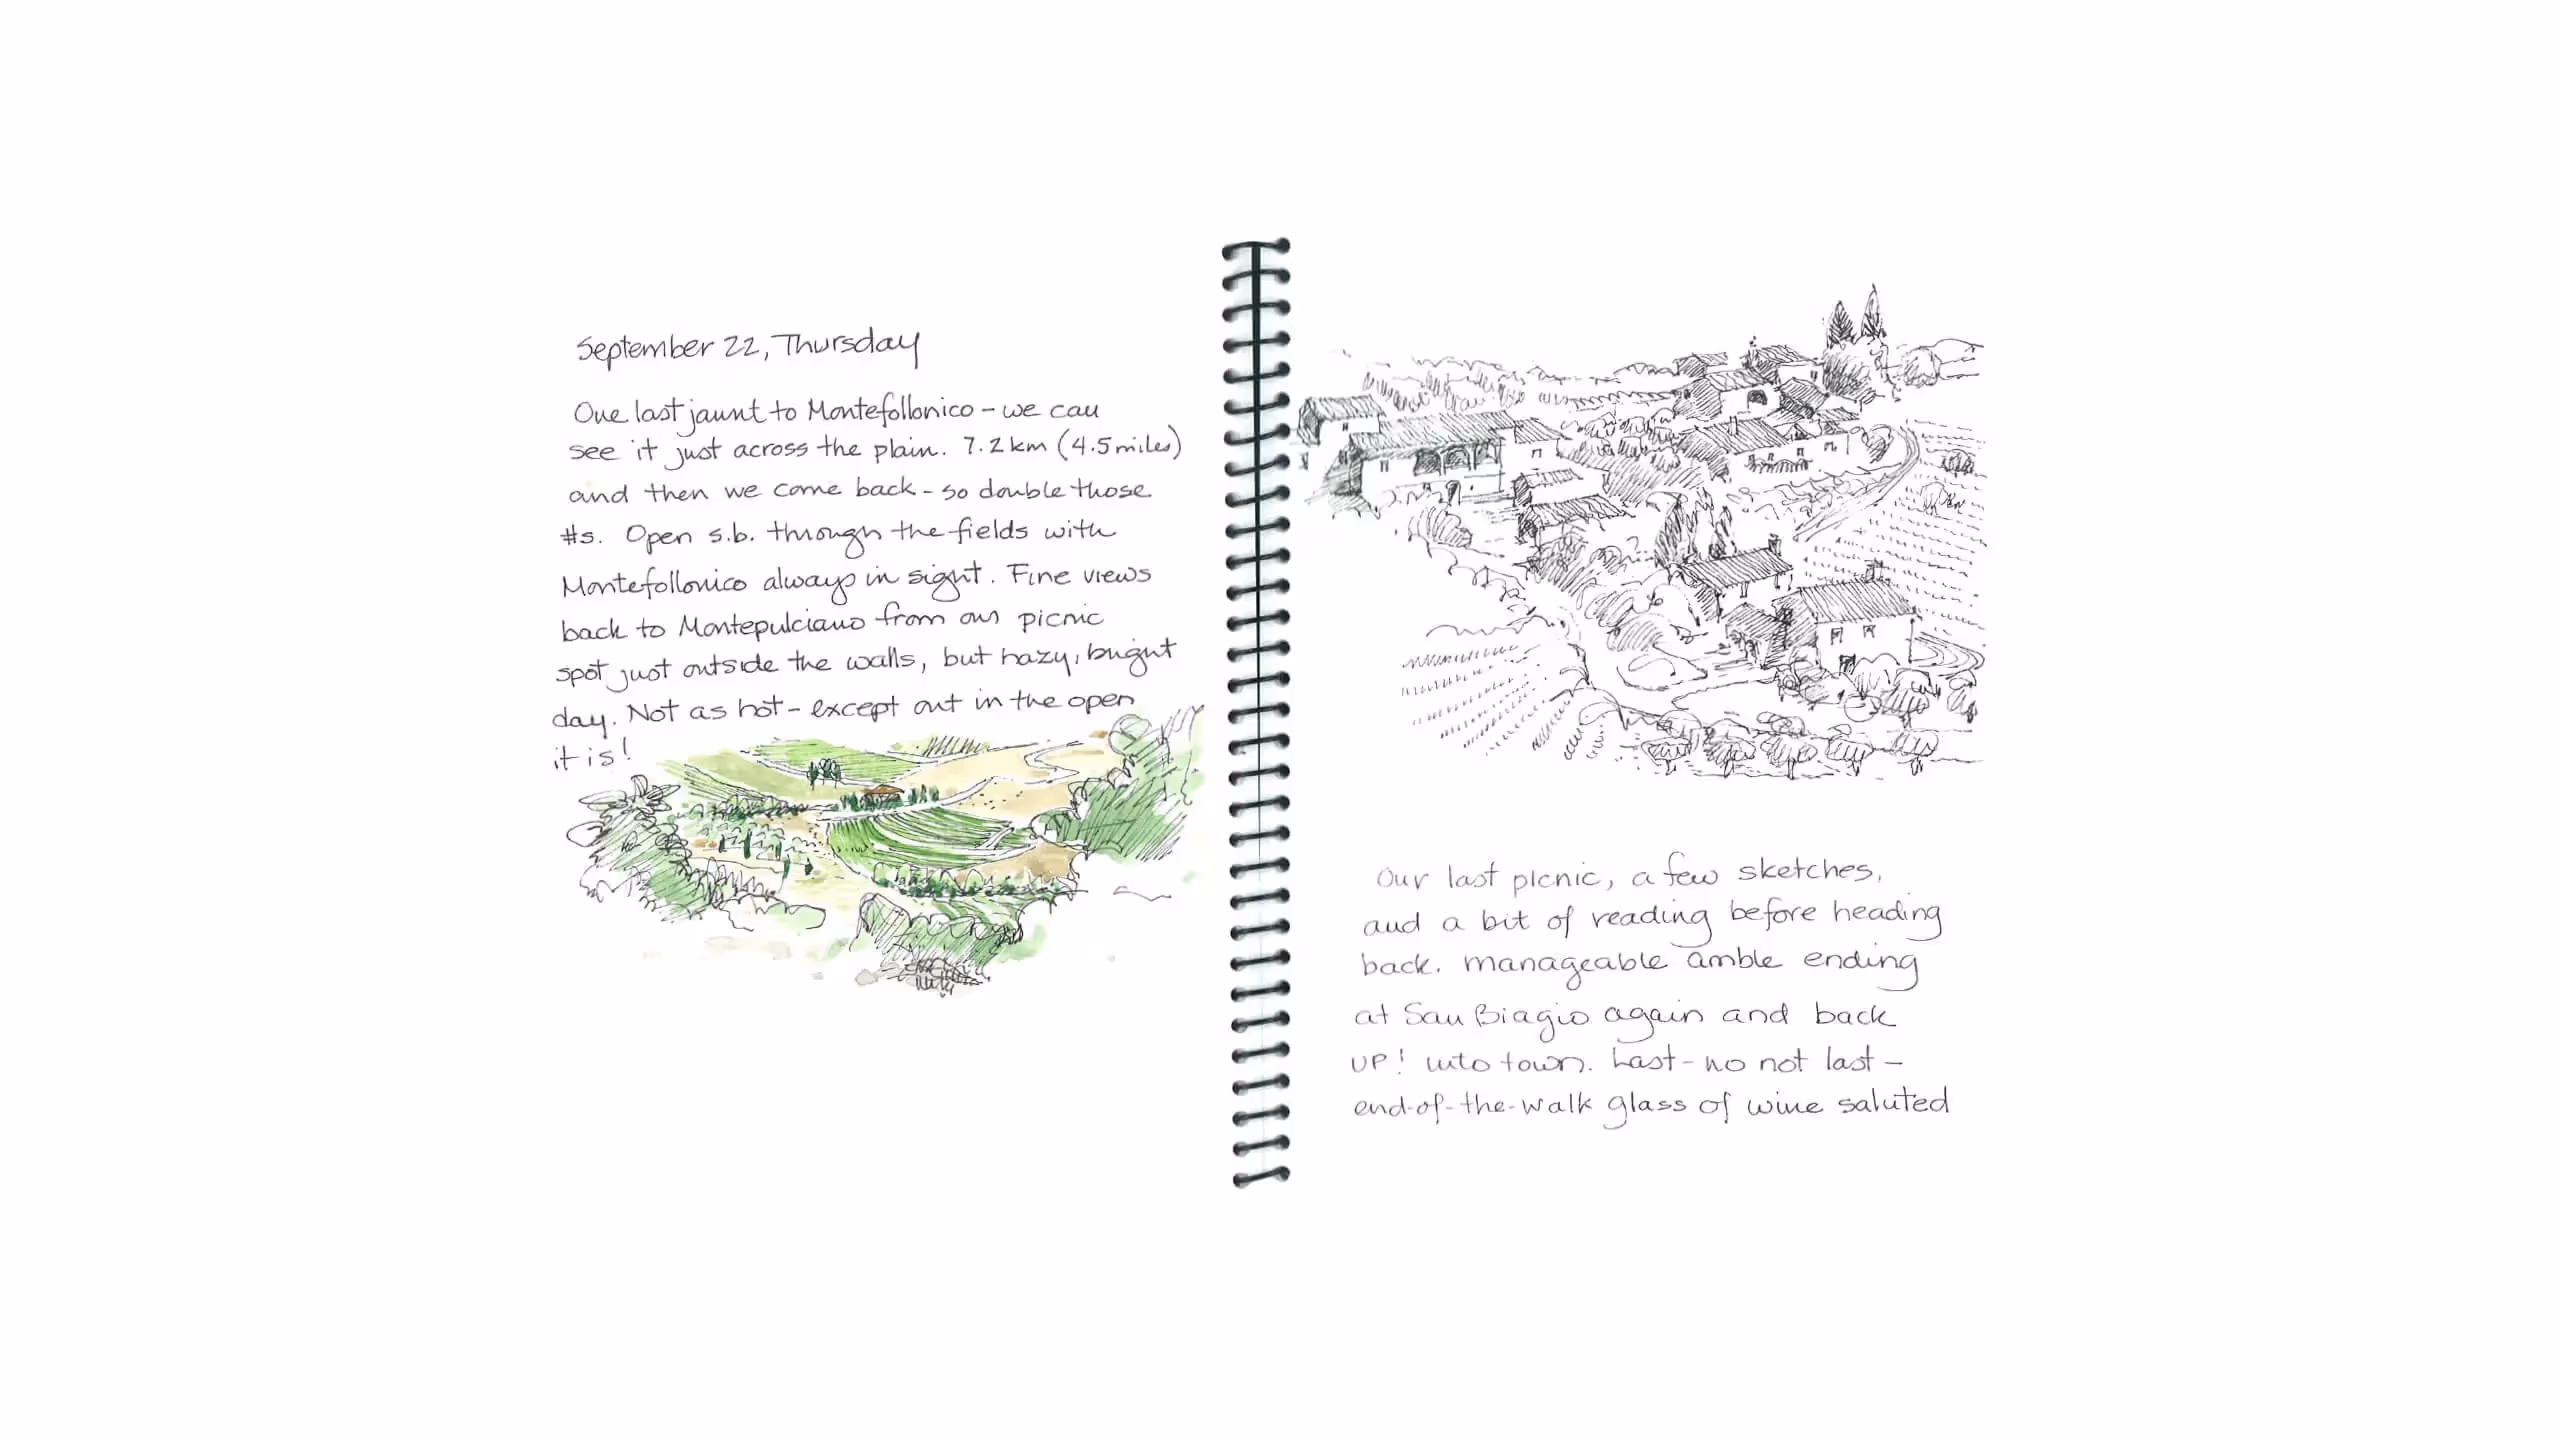 September 22, Thursday
One last jaunt to Montefollonico - we can
see it just across the plain. 7.2 km (4.5 miles)
and then we come back - so double those
#s. Open s.b. through the fields with
Montefollonico always in sight. Fine views
back to Montepulciano from our picnic
spot just outside the walls, but hazy, bright
day. Not as hot - except out in the open
it is!
Our last picnic, a few sketches,
and a bit of reading before heading
back. Manageable amble ending
at San Biagio again and back
UP! into town. Last - no not last -
end-of-the-walk glass of wine saluted